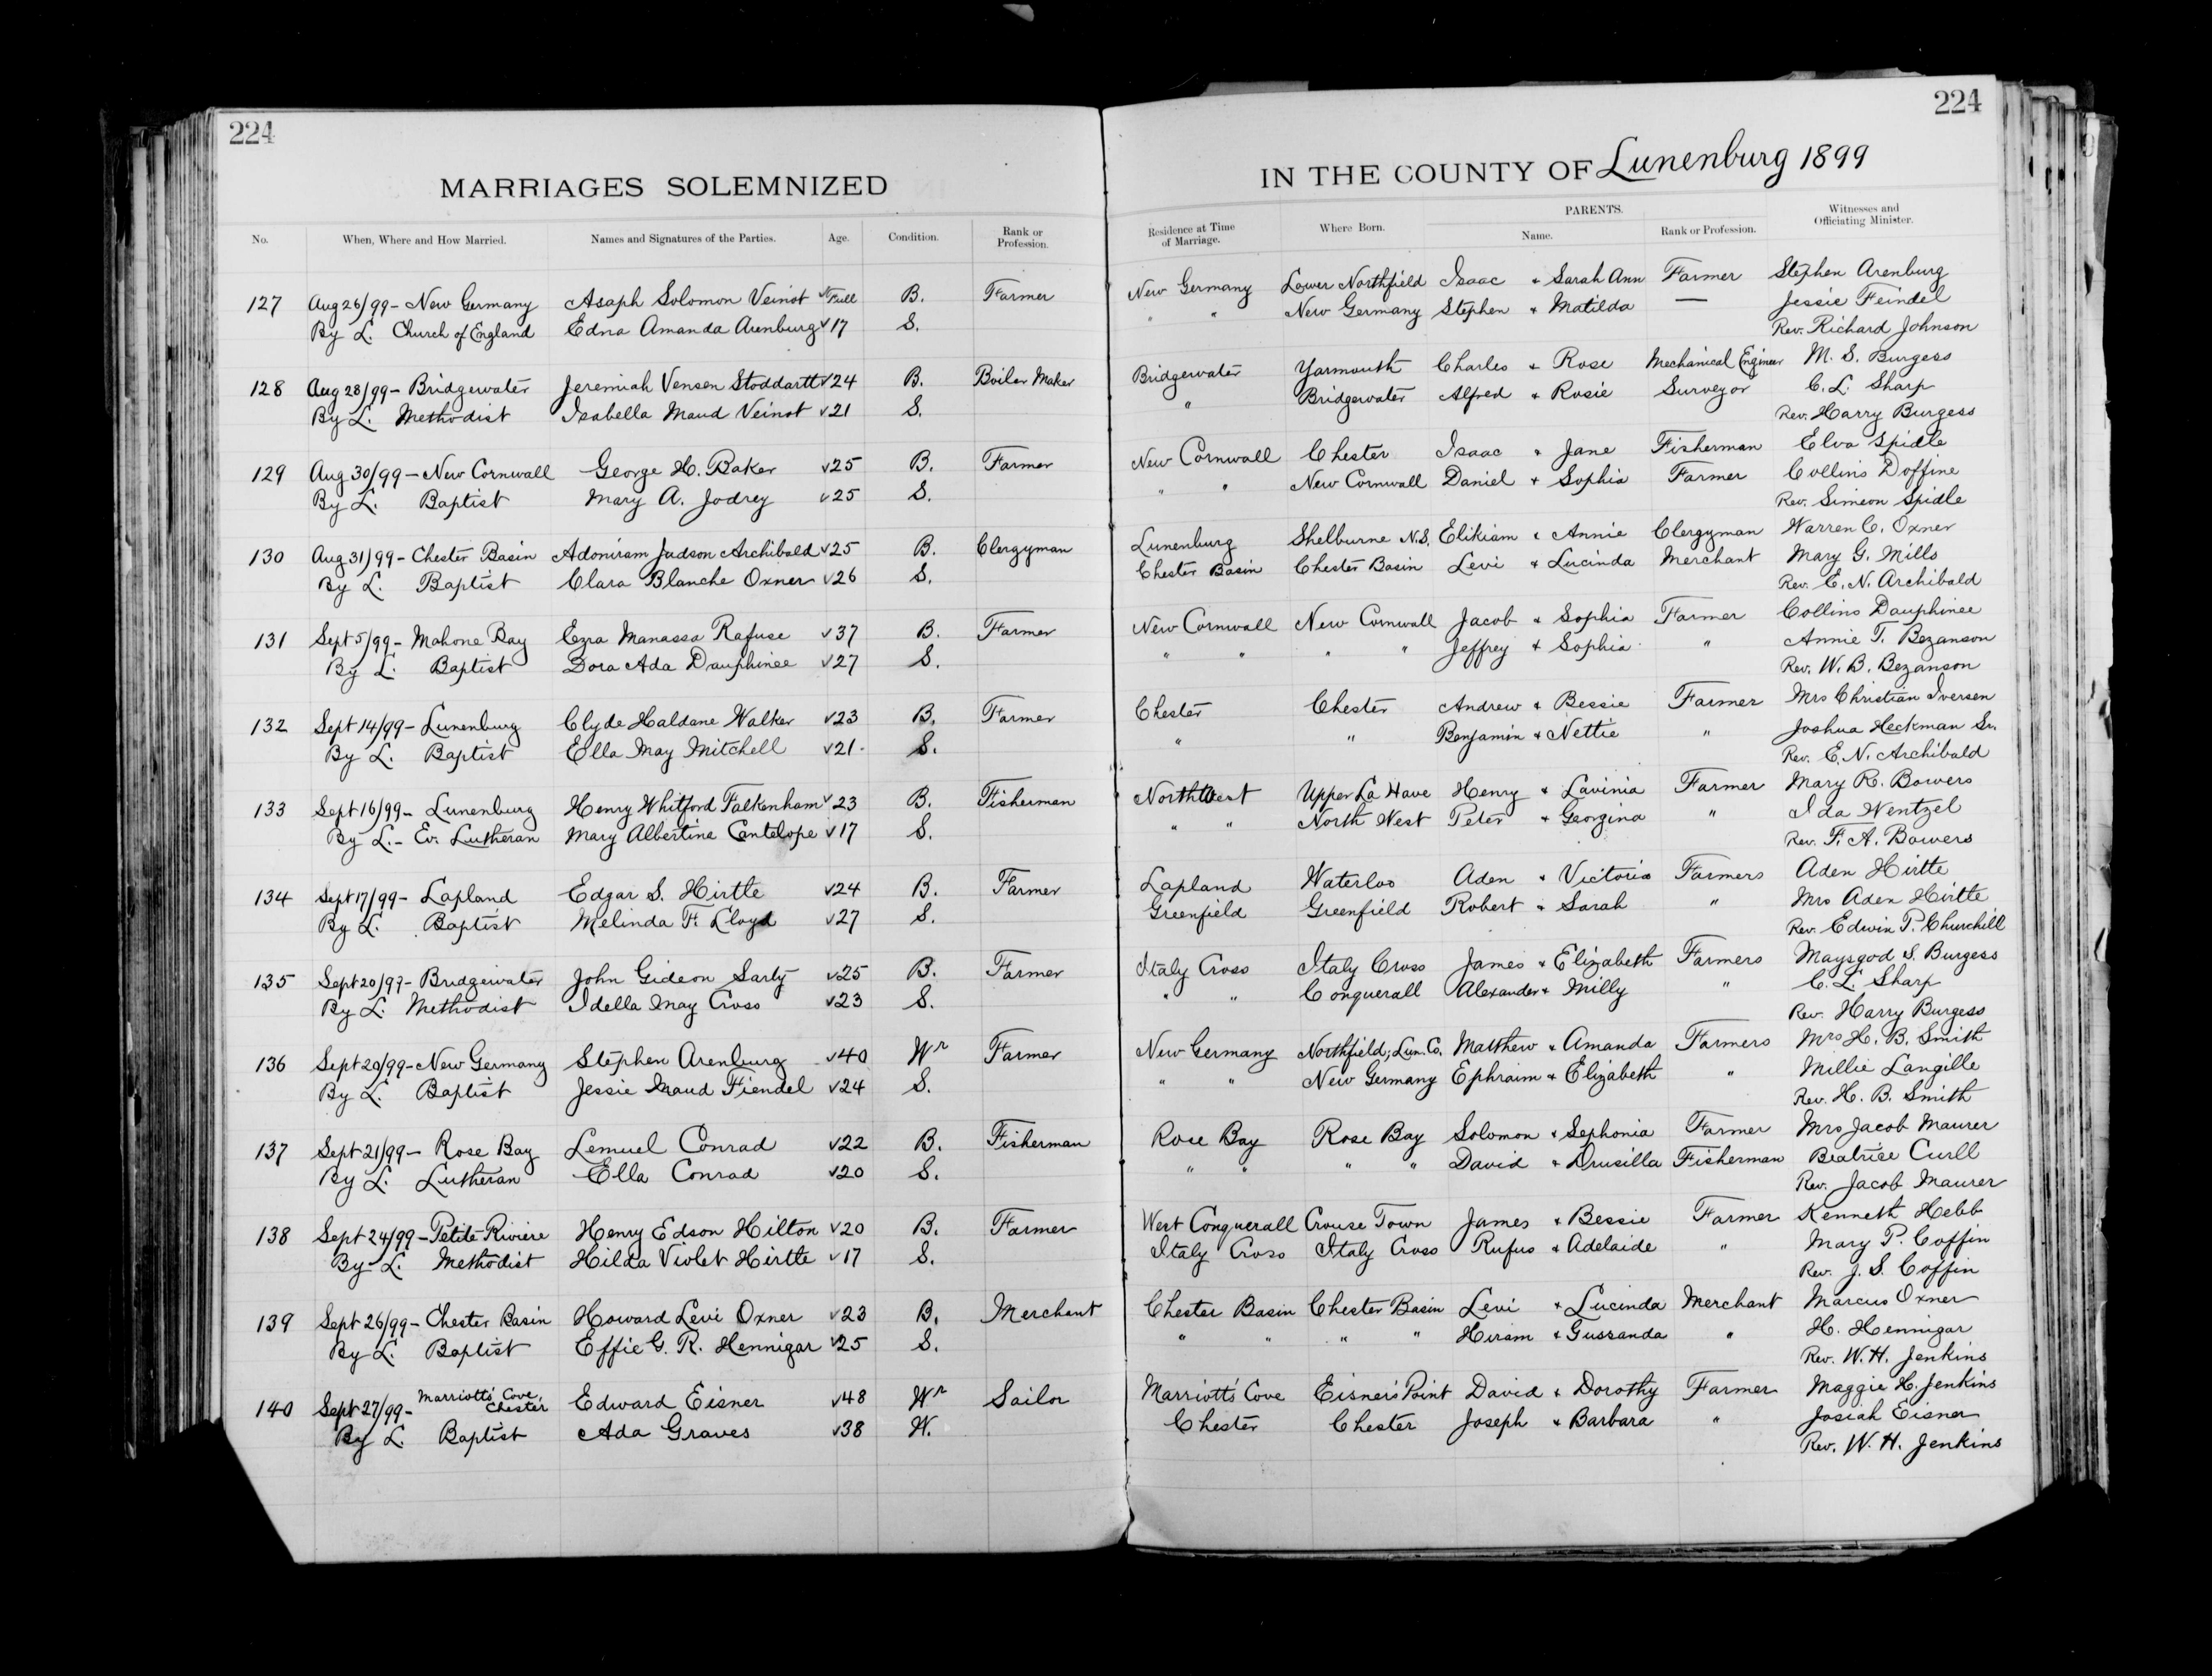 224
MARRIAGES SOLEMNIZED
No. When, Where and How Married. Names and Signatures of the Parties. Age. Condition. Rank or Profession.
127 Aug 26/99 - New Germany Asaph Solomon Veinot √Full B. Farmer
By L. Church of England Edna Amanda Arenburg √17 S.
128 Aug 28/99 - Bridgewater Jeremiah Vensen Stoddartt √24 B. Boiler Maker
By L. Methodist Isabella Maud Veinot √21 S.
129 Aug 30/99 - New Cornwall George H. Baker √25 B. Farmer
By L. Baptist Mary A. Jodrey √25 S.
130 Aug 31/99 - Chester Basin Adoniram Judson Archibald √25 B. Clergyman
By L. Baptist Clara Blanche Oxner √26 S.
131 Sept 5/99 - Mahone Bay Ezra Manassa Rafuse √37 B. Farmer
By L. Baptist Dora Ada Dauphinee √27 S.
132 Sept 14/99 - Lunenburg Clyde Haldane Walker √23 B. Farmer
By L. Baptist Ella May Mitchell √21 S.
133 Sept 16/99 - Lunenburg Henry Whitford Falkenham √23 B. Fisherman
By L. - Ev. Lutheran Mary Albertina Cantelope √17 S.
134 Sept 17/99 - Lapland Edgar S. Hirtle √24 B. Farmer
By L. Baptist Melinda F. Lloyd √27 S.
135 Sept 20/99 - Bridgewater John Gideon Sarty √25 B. Farmer
By L. Methodist Idella May Cross √23 S.
136 Sept 20/99 - New Germany Stephen Arenburg √40 Wr Farmer
By L. Baptist Jessie Maud Fiendel √24 S.
137 Sept 21/99 - Rose Bay Lemuel Conrad √22 B. Fisherman
By L. Lutheran Ella Conrad √20 S.
138 Sept 24/99 - Petite Riviere Henry Edson Hilton √20 B. Farmer
By L. Methodist Hilda Violet Hirtle √17 S.
139 Sept 26/99 - Chester Basin Howard Levi Oxner √23 B. Merchant
By L. Baptist Effie G. R. Hennigar √25 S.
140 Sept 27/99 - Marriott's Cove, Chester Edward Eisner √48 Wr Sailor
By L. Baptist Ada Graves √38 W.
224
IN THE COUNTY OF Lunenburg 1899
Residence at Time of Marriage. Where Born. PARENTS. Name. Rank or Profession. Witnesses and Officiating Minister.
New Germany Lower Northfield Isaac + Sarah Ann Farmer Stephen Arenburg
" " New Germany Stephen + Matilda — Jessie Feindel
Rev. Richard Johnson
Bridgewater Yarmouth Charles + Rose Mechanical Engineer M. S. Burgess
" Bridgewater Alfred + Rosie Surveyor C. L. Sharp
Rev. Harry Burgess
New Cornwall Chester Isaac + Jane Fisherman Elva Spidle
" " New Cornwall Daniel + Sophia Farmer Collins Doffine
Rev. Simeon Spidle
Lunenburg Shelburne N.S. Elikiam + Annie Clergyman Warren C. Oxner
Chester Basin Chester Basin Levi + Lucinda Merchant Mary G. Mills
Rev. E. N. Archibald
New Cornwall New Cornwall Jacob + Sophia Farmer Collins Dauphinee
" " " " Jeffrey + Sophia " Annie T. Bezanson
Rev. W. B. Bezanson
Chester Chester Andrew + Bessie Farmer Mrs Christian Iversen
" " Benjamin + Nettie " Joshua Heckman Sr.
Rev. E. N. Archibald
Northwest Upper La Have Henry + Lavinia Farmer Mary R. Bowers
" " North West Peter + Georgina " Ida Wentzel
Rev. F. A. Bowers
Lapland Waterloo Aden + Victoria Farmers Aden Hirtle
Greenfield Greenfield Robert + Sarah " Mrs Aden Hirtle
Rev. Edwin P. Churchill
Italy Cross Italy Cross James + Elizabeth Farmers Maysgod S. Burgess
" " Conquerall Alexander + Milly " C. L. Sharp
Rev. Harry Burgess
New Germany Northfield, Lun. Co. Matthew + Amanda Farmers Mrs H. B. Smith
" " New Germany Ephraim + Elizabeth " Millie Langille
Rev. H. B. Smith
Rose Bay Rose Bay Solomon + Sephonia Farmer Mrs Jacob Maurer
" " " " David + Drusilla Fisherman Beatrice Curll
Rev. Jacob Maurer
West Conquerall Crouse Town James + Bessie Farmer Kenneth Hebb
Italy Cross Italy Cross Rufus + Adelaide " Mary P. Coffin
Rev. J. S. Coffin
Chester Basin Chester Basin Levi + Lucinda Merchant Marcus Oxner
" " " " Hiram + Gussanda " H. Hennigar
Rev. W. H. Jenkins
Marriott's Cove Eisner's Point David + Dorothy Farmer Maggie H. Jenkins
Chester Chester Joseph + Barbara " Josiah Eisner
Rev. W. H. Jenkins